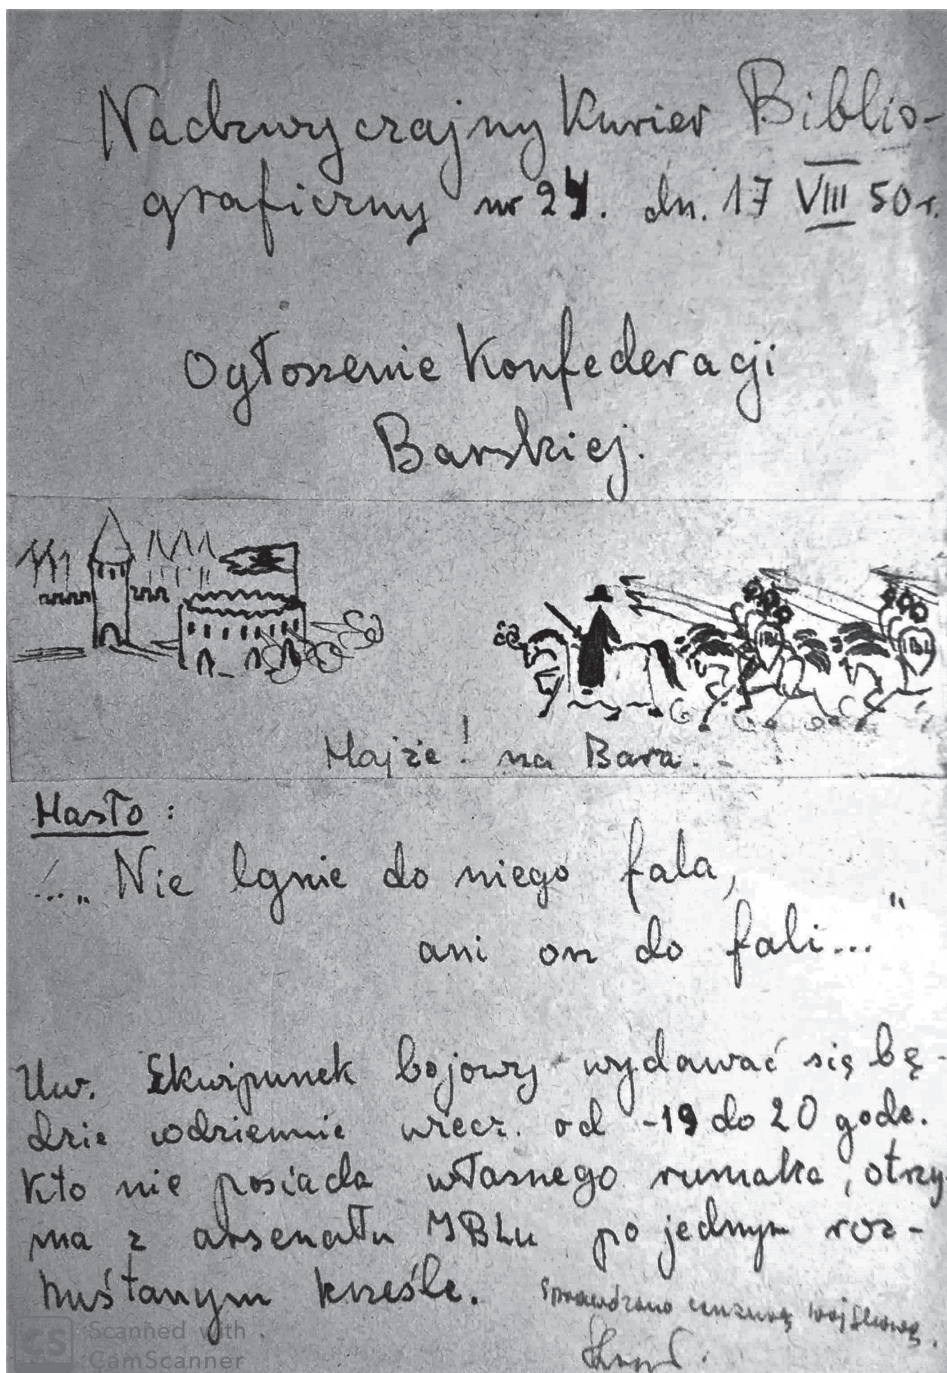 Nadzwyczajny Kurier Biblio-
graficzny nr 24. dn. 17 VIII 50 r.
Ogłoszenie Konfederacji
Barskiej.
IBL
IBL
Hajże! na Bara.
Hasło:
... „Nie lgnie do niego fala,
ani on do fali..."
Uw. Ekwipunek bojowy wydawać się bę-
dzie codziennie wiecz. od -19 do 20 godz.
Kto nie posiada własnego rumaka, otrzy-
ma z arsenału IBLu po jednym roz-
huśtanym krześle.
Sprawdzono cenzurą wojskową.
CS Scanned with
CamScanner